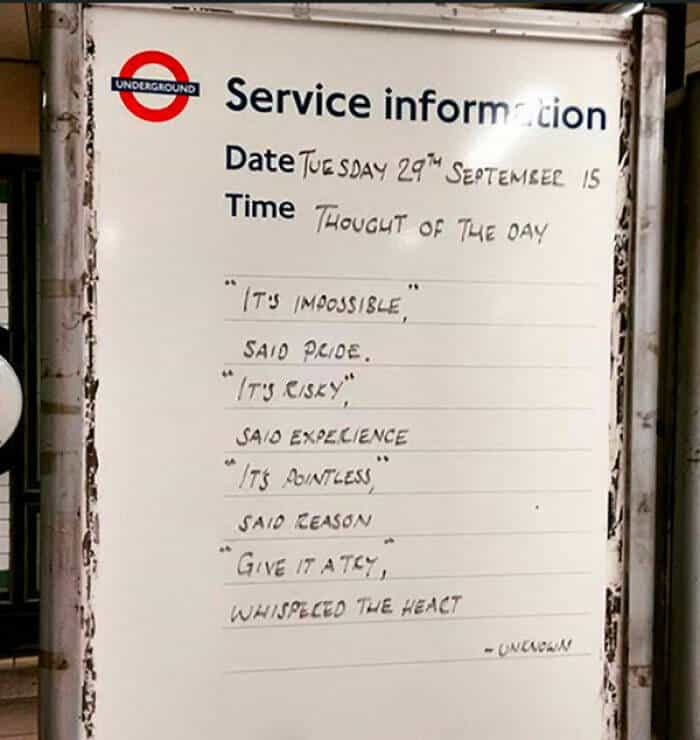 UNDERGROUND
Service information
Date TUESDAY 29TH SEPTEMBER 15
Time THOUGHT OF THE DAY
"IT'S IMPOSSIBLE,"
SAID PRIDE.
"IT'S RISKY",
SAID EXPERIENCE
"IT'S POINTLESS,"
SAID REASON
"GIVE IT A TRY,"
WHISPERED THE HEART
- UNKNOWN